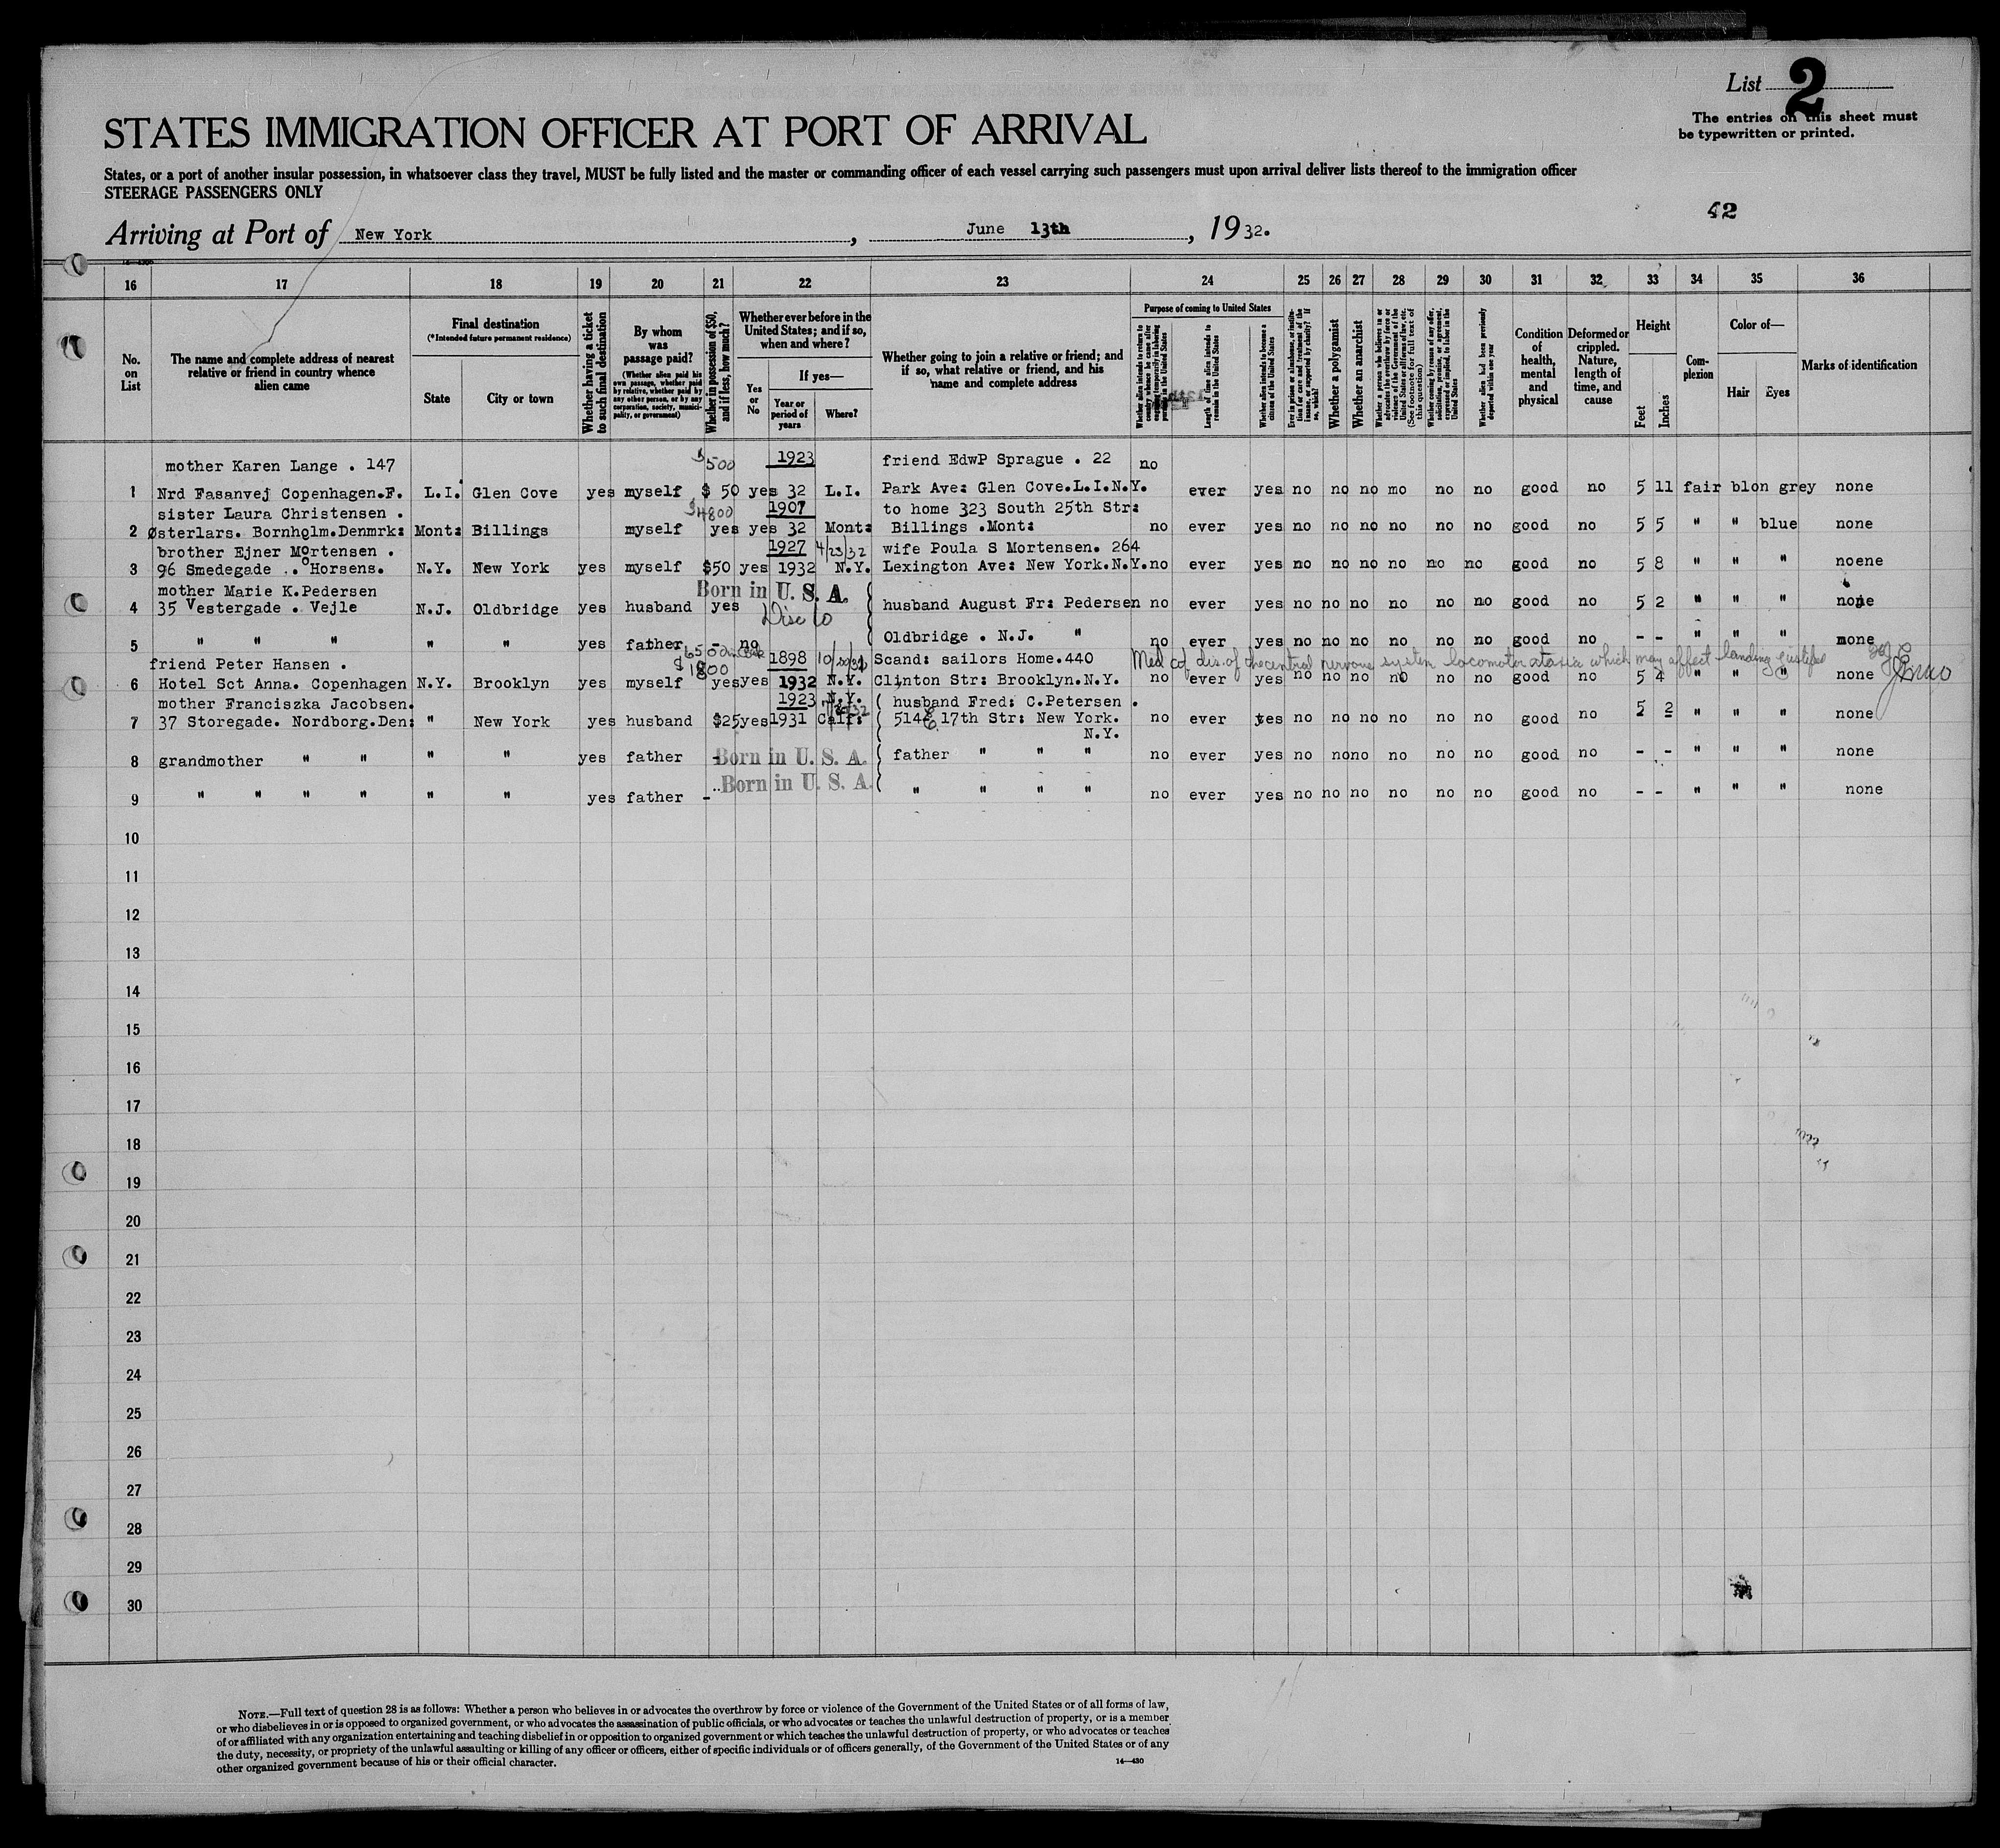 List 2
The entries on this sheet must
be typewritten or printed.
STATES IMMIGRATION OFFICER AT PORT OF ARRIVAL
States, or a port of another insular possession, in whatsoever class they travel, MUST be fully listed and the master or commanding officer of each vessel carrying such passengers must upon arrival deliver lists thereof to the immigration officer
STEERAGE PASSENGERS ONLY
Arriving at Port of New York, June 13th, 1932.
16 17 18 19 20 21 22 23 24 25 26 27 28 29 30 31 32 33 34 35 36
No. on List
The name and complete address of nearest relative or friend in country whence alien came
Final destination
(*Intended future permanent residence)
State
City or town
Whether having a ticket to such final destination
By whom was passage paid?
(Whether alien paid his own passage, whether paid by relative, whether paid by any other person, or by any corporation, society, municipality, or government)
Whether in possession of $50, and if less, how much?
Whether ever before in the United States; and if so, when and where?
Yes or No
If yes—
Year or period of years
Where?
Whether going to join a relative or friend; and if so, what relative or friend, and his name and complete address
Purpose of coming to United States
Length of time alien intends to remain in the United States
Whether alien intends to become a citizen of the United States
Whether a polygamist
Whether an anarchist
Whether alien had been previously deported within one year
Condition of health, mental and physical
Deformed or crippled. Nature, length of time, and cause
Height
Feet
Inches
Complexion
Color of—
Hair
Eyes
Marks of identification
mother Karen Lange . 147 $500 1923 friend EdwP Sprague . 22 no
1 Nrd Fasanvej Copenhagen.F. L.I. Glen Cove yes myself $ 50 yes 32 L.I. Park Ave: Glen Cove.L.I.N.Y. ever yes no no no mo no no good no 5 11 fair blon grey none
sister Laura Christensen . $4800 1907 to home 323 South 25th Str:
2 Østerlars. Bornholm.Denmrk: Mont: Billings myself yes yes 32 Mont: Billings .Mont: no ever yes no no no no no no good no 5 5 " " blue none
brother Ejner Mortensen . 1927 4/23/32 wife Poula S Mortensen. 264
3 96 Smedegade .. Horsens. N.Y. New York yes myself $50 yes 1932 N.Y. Lexington Ave: New York.N.Y. no ever yes no no no no no no good no 5 8 " " " noene
mother Marie K.Pedersen Born in U. S. A.
4 35 Vestergade . Vejle N.J. Oldbridge yes husband yes husband August Fr: Pedersen no ever yes no no no no no no good no 5 2 " " " none
5 " " " " " yes father - no Oldbridge . N.J. " no ever yes no no no no no no good no - - " " " none
friend Peter Hansen . $1800 1898 Scand: sailors Home.440 Med cf dis. of the central nervous system locomotor ataxia which may affect landing
6 Hotel Sct Anna. Copenhagen N.Y. Brooklyn yes myself yes yes 1932 N.Y. Clinton Str: Brooklyn.N.Y. no ever yes no no no no no no good no 5 4 " " " none
mother Franciszka Jacobsen. 1923 N.Y. husband Fred: C.Petersen .
7 37 Storegade. Nordborg.Den: " New York yes husband $25 yes 1931 Calf: 514 E 17th Str: New York. no ever yes no no no no no no good no 5 2 " " " none
N.Y.
8 grandmother " " " " yes father - Born in U. S. A. father " " " no ever yes no no no no no no good no - - " " " none
9 " " " " " " yes father - Born in U. S. A. " " " " no ever yes no no no no no no good no - - " " " none
10
11
12
13
14
15
16
17
18
19
20
21
22
23
24
25
26
27
28
29
30
NOTE.—Full text of question 28 is as follows: Whether a person who believes in or advocates the overthrow by force or violence of the Government of the United States or of all forms of law,
or who disbelieves in or is opposed to organized government, or who advocates the assassination of public officials, or who advocates or teaches the unlawful destruction of property, or is a member
of or affiliated with any organization entertaining and teaching disbelief in or opposition to organized government or which teaches the unlawful destruction of property, or who advocates or teaches
the duty, necessity, or propriety of the unlawful assaulting or killing of any officer or officers, either of specific individuals or of officers generally, of the Government of the United States or of any
other organized government because of his or their official character.
14—430